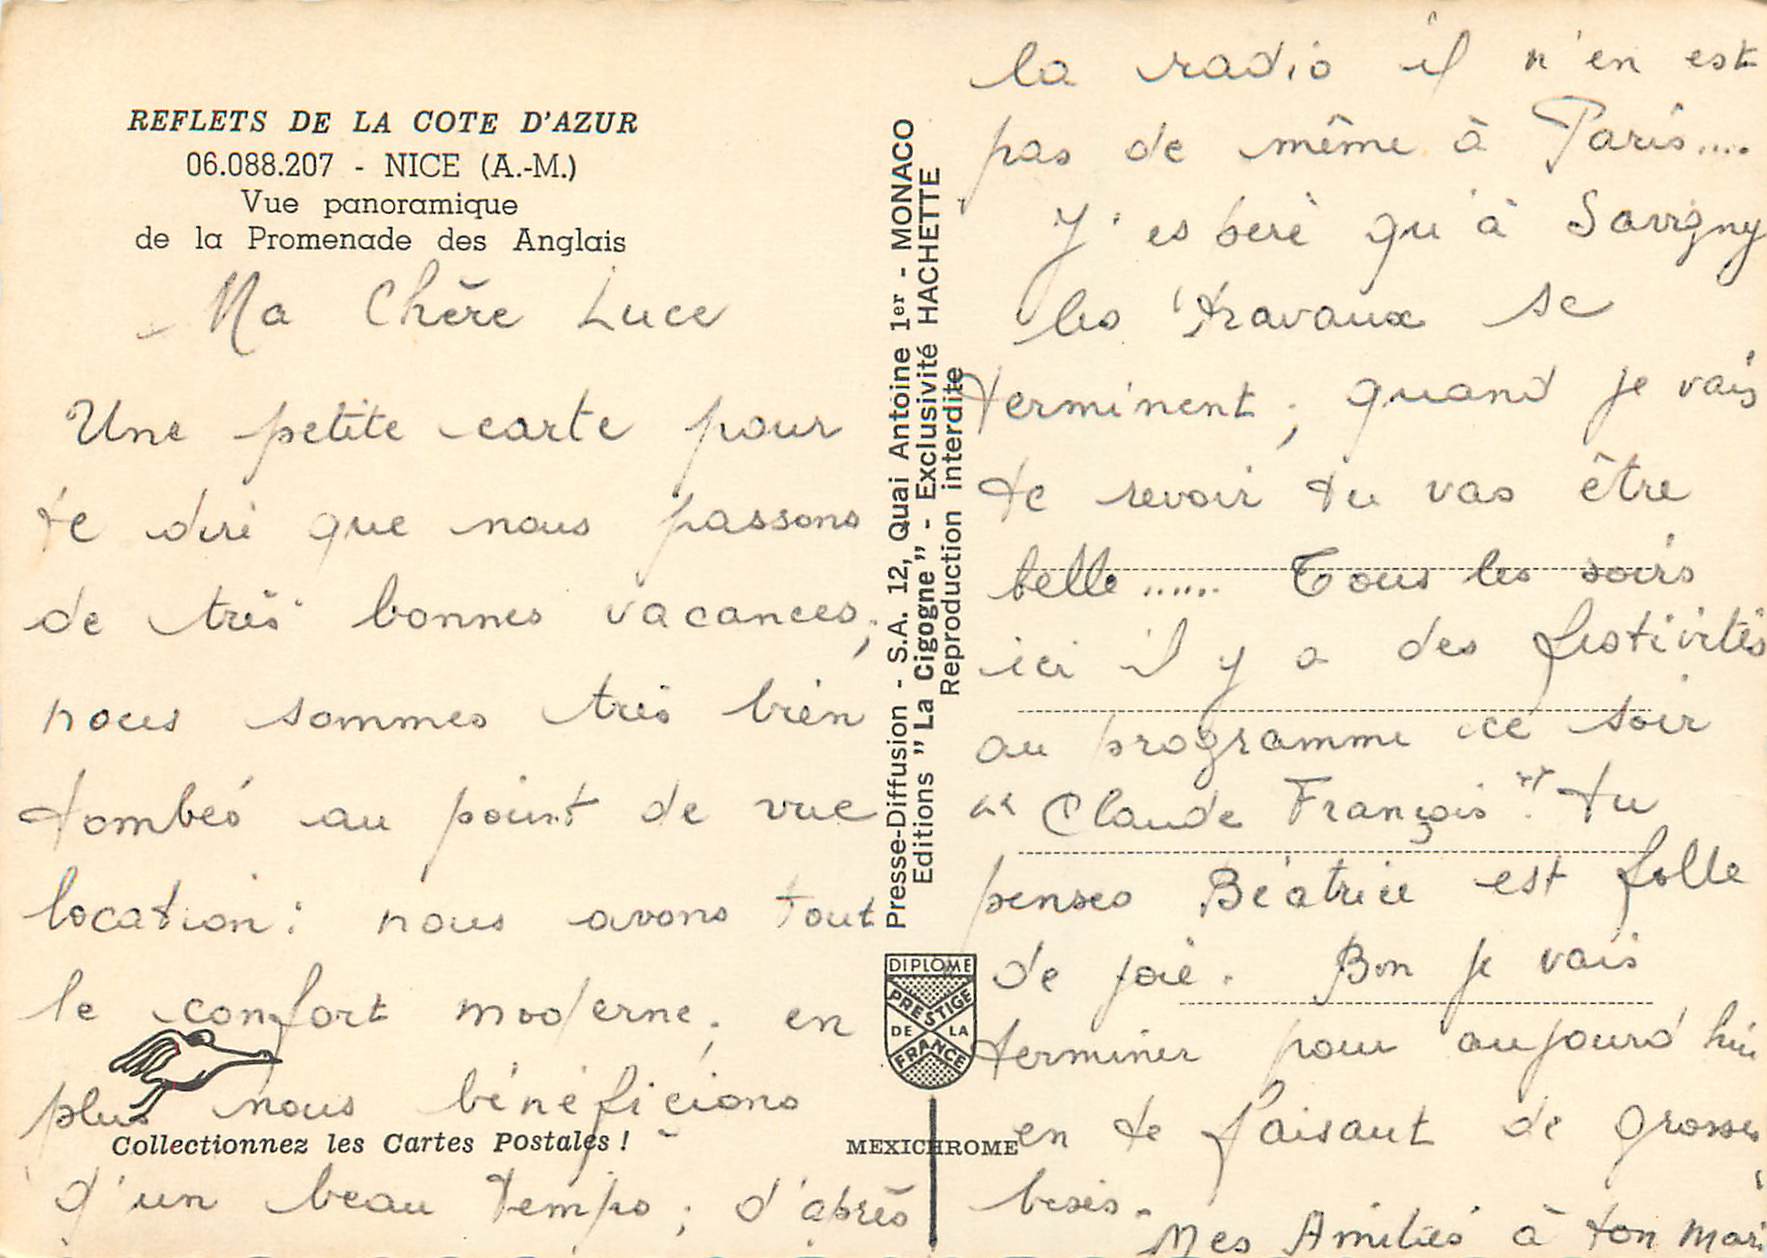 REFLETS DE LA COTE D'AZUR
06.088.207 - NICE (A.-M.)
Vue panoramique
de la Promenade des Anglais
Ma Chère Luce
Une petite carte pour
te dire que nous passons
de très bonnes vacances,
nous sommes très bien
tombés au point de vue
location : nous avons tout
le confort moderne, en
plus nous bénéficions
Collectionnez les Cartes Postales !
d'un beau temps ; d'après
Presse-Diffusion - S.A. 12, Quai Antoine 1er - MONACO
Editions "La Cigogne" - Exclusivité HACHETTE
Reproduction interdite
DIPLOME
PRESTIGE
DE LA
FRANCE
MEXICHROME
la radio il n'en est
pas de même à Paris....
J'espère qu'à Savigny
les travaux se
terminent, quand je vais
te revoir tu vas être
belle...... Tous les soirs
ici il y a des festivités
au programme ce soir
"Claude François". tu
penses Béatrice est folle
de joie. Bon je vais
terminer pour aujourd'hui
en te faisant de grosses
beses.
Mes Amitiés à ton mari